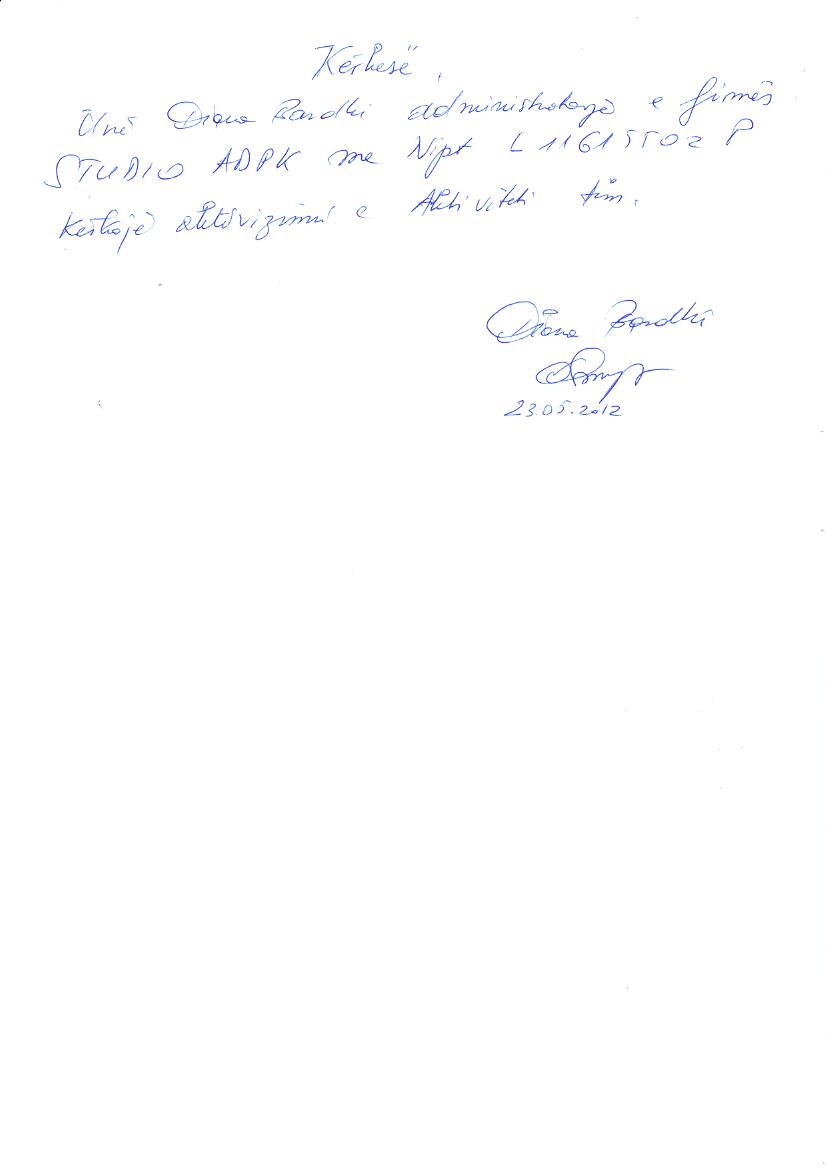 Kërkesë,
Unë Diana Bardhi administratorja e firmës
STUDIO ADPK me Nipt L11615502P
Kerkojë aktivizimi e Aktiviteti tim.
Diana Bardhi
23.05.2012